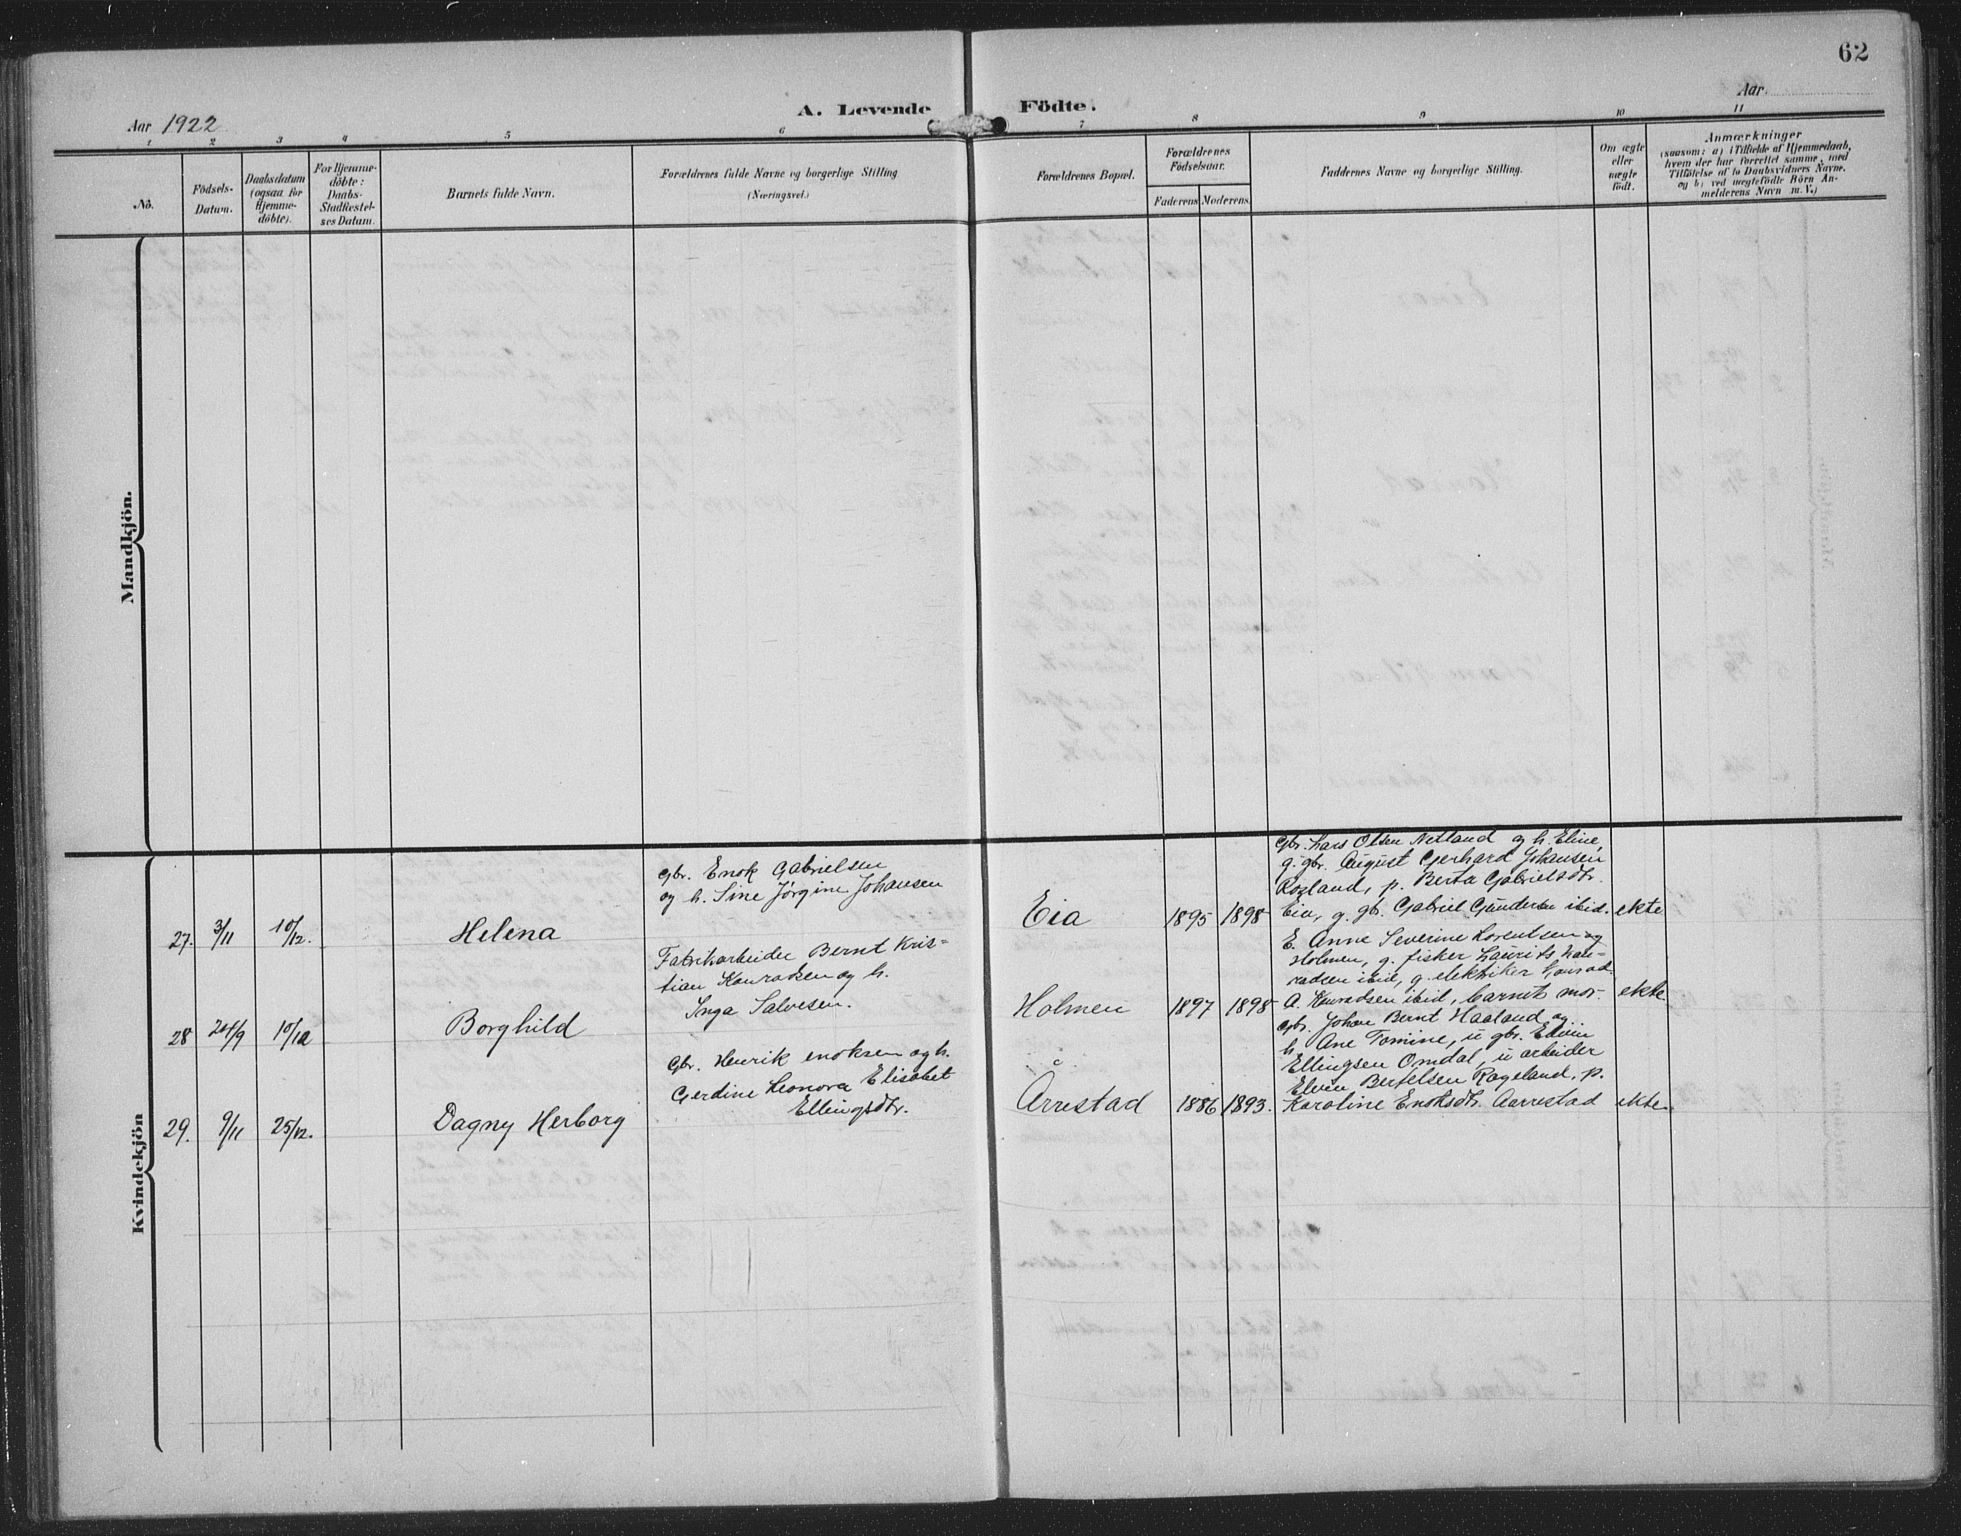 62
A. Levende Födte.
Aar 1922
Aar
1 2 3 4 5 6 7 8 9 10 11
No.
Födsels-
Datum.
Daabsdatum
(ogsaa for
Hjemme-
döbte).
For Hjemme-
döbte:
Daabs-
Stadfæstel-
ses Datum.
Barnets fulde Navn.
Forældrenes fulde Navne og borgerlige Stilling
(Næringsvei.)
Forældrenes Bopæl.
Forældrenes
Födselsaar.
Faderens. Moderens.
Faddernes Navne og borgerlige Stilling.
Om ægte
eller
uægte
födt.
Anmærkninger
(saasom: a) i Tilfælde af Hjemmedaab,
hvem der har forrettet samme, med
Tilföielse af to Daabsvidners Navne,
og b) ved uægtefödte Börn An-
melderens Navn m. V.)
Mandkjön.
Kvindekjön
27. 3/11 10/12. Helena
gbr. Enok Gabrielsen
og h. Sine Jørgine Johansen
Eia 1895 1898
gbr. Lars Olsen Netland og h. Eline,
g. gbr. August Gerhard Johansen
Rogland, p. Berta Gabrielsdtr.
Eia, g. gbr. Gabriel Gundersen ibid.
ekte
28 24/9 10/12 Borghild
Fabrikarbeider Bernt Kris-
tian Konradsen og h.
Inga Salvesen.
Holmen 1897 1898
E. Anne Severine Lorentsen og
Holmen, g. fisker Laurits Kon-
radsen ibid, g. elektriker Konrad
A. Konradsen ibid, barnets mor.
ekte
29. 9/11 25/12. Dagny Herborg
Gbr. Henrik Enoksen og h.
Gerdine Leonora Elisabet
Ellingsdtr.
Årrestad 1886 1893.
Gbr. Johan Bernt Haaland og
h. Ane Tomine, u gbr. Edvin
Ellingsen Omdal, u arbeider
Elvin Bertelsen Rogeland, p.
Karoline Enoksdtr. Aarrestad
ekte